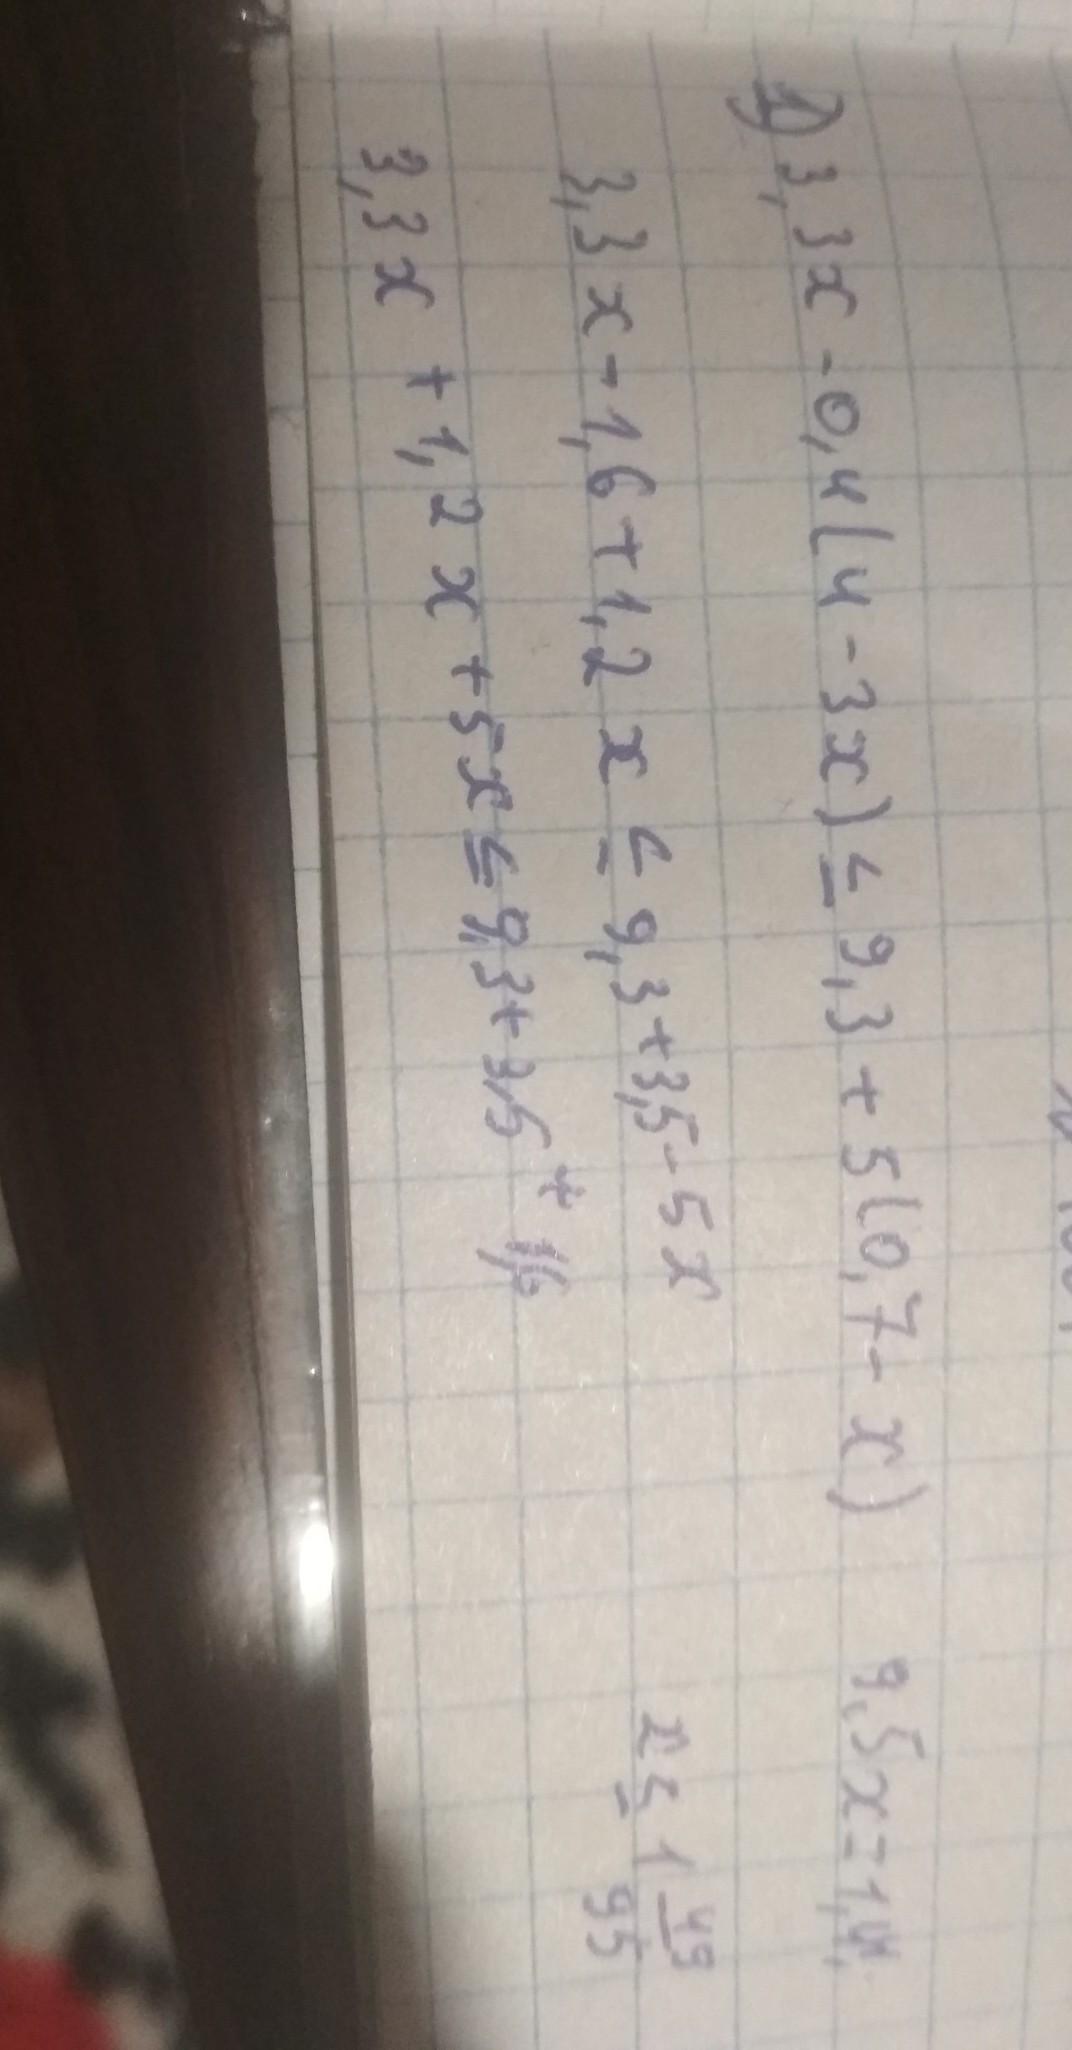 1) 3,3x - 0,4(4 - 3x) ≤ 9,3 + 5(0,7 - x)
3,3x - 1,6 + 1,2x ≤ 9,3 + 3,5 - 5x
3,3x + 1,2x + 5x ≤ 9,3 + 3,5 + 1,6
9,5x = 1,4,
x ≤ 1 49/95